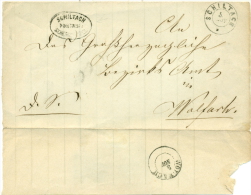 SCHILTACH
SCHILTACH
An
Das Großherzogliche
Bezirks Amt
in
D. S.
Wolfach
WOLFACH